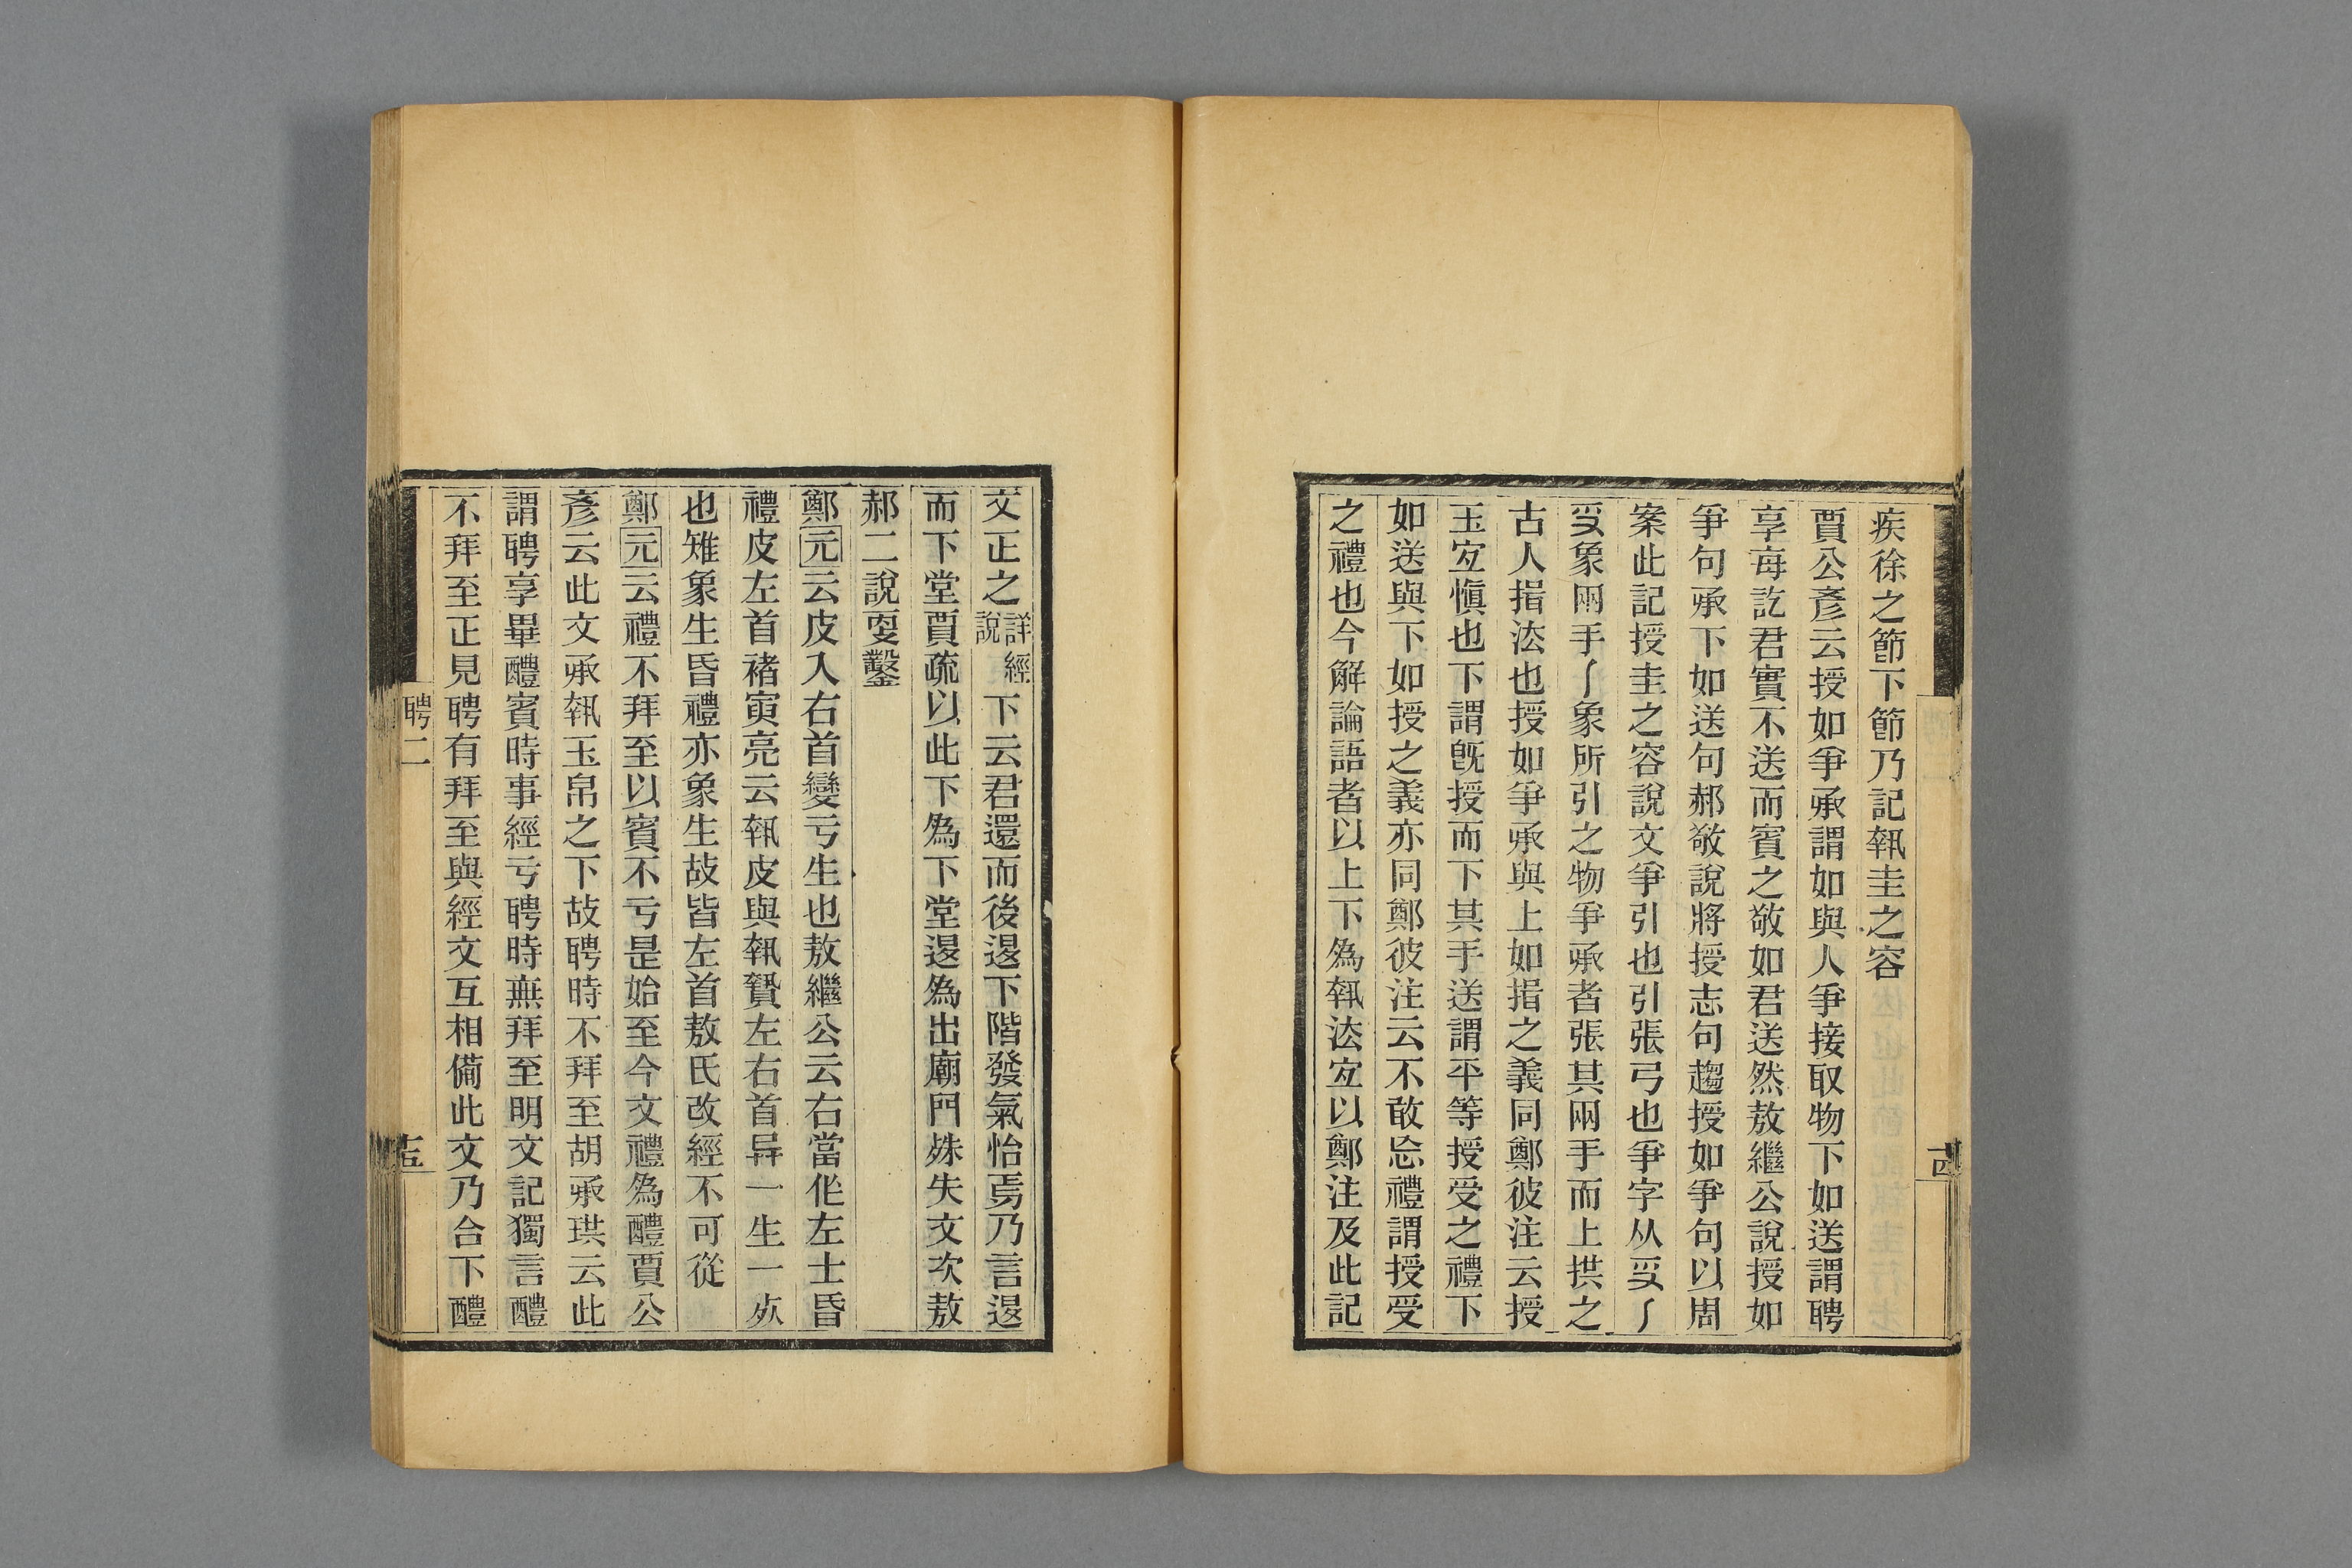 疾徐之節下節乃記執圭之容
賈公彥云授如爭承謂如與人爭接取物下如送謂聘
享每訖君實不送而賓之敬如君送然敖繼公說授如
爭句承下如送句郝敬說將授志句趨授如爭句以周
案此記授圭之容說文爭引也引張弓也爭字从𠬪𠂆
𠬪象兩手𠂆象所引之物爭承者張其兩手而上拱之
古人揖法也授如爭承與上如揖之義同鄭彼注云授
玉宜愼也下謂既授而下其手送謂平等授受之禮下
如送與下如授之義亦同鄭彼注云不敢忘禮謂授受
之禮也今解論語者以上下為執法宜以鄭注及此記
十四
文正之詳經說下云君還而後退下階發氣怡焉乃言退
而下堂賈疏以此下為下堂退為出廟門殊失文次敖
郝二說更鑿
鄭元云皮入右首變亏生也敖繼公云右當作左士昏
禮皮左首褚寅亮云執皮與執贄左右首异一生一𣦸
也雉象生昏禮亦象生故皆左首敖氏改經不可從
鄭元云禮不拜至以賓不亏是始至今文禮為醴賈公
彥云此文承執玉帛之下故聘時不拜至胡承珙云此
謂聘享畢醴賓時事經亏聘時無拜至明文記獨言醴
不拜至正見聘有拜至與經文互相備此文乃合下醴
聘二
十五